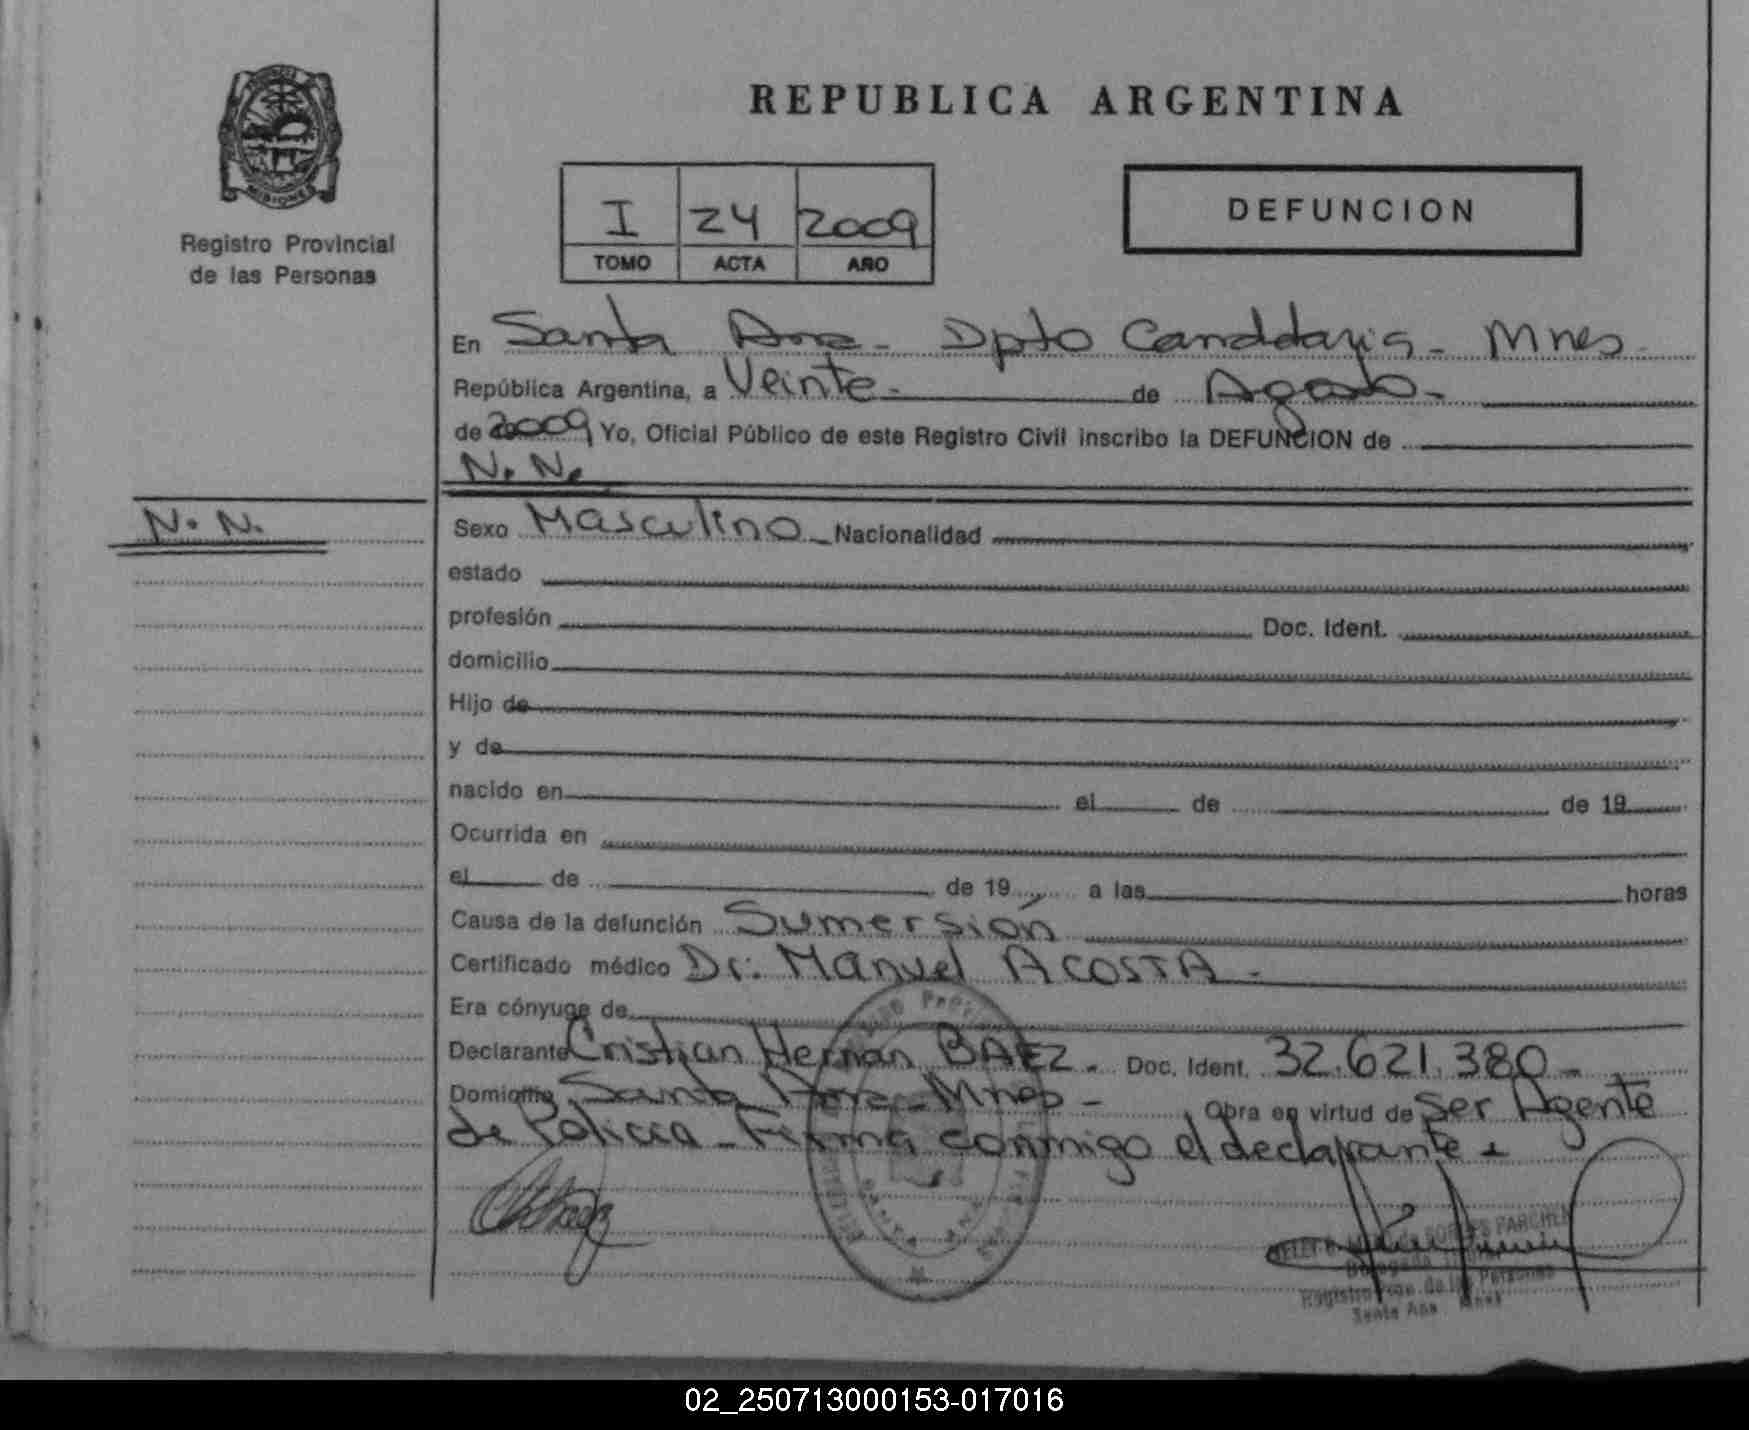 REPUBLICA ARGENTINA
MISIONES
Registro Provincial
de las Personas
I 24 2009
TOMO ACTA AÑO
DEFUNCION
En Santa Ana - Dpto Candelaria - Mnes -
República Argentina, a Veinte - de Agosto -
de 2009 Yo, Oficial Público de este Registro Civil inscribo la DEFUNCION de
N. N.
N. N.
Sexo Masculino - Nacionalidad
estado
profesión Doc. Ident.
domicilio
Hijo de
y de
nacido en el de de 19
Ocurrida en
el de de 19 a las horas
Causa de la defunción Sumersión
Certificado médico Dr: Manuel ACOSTA -
Era cónyuge de
Declarante Cristian Hernan BAEZ. Doc. Ident. 32.621.380 -
Domicilio Santa Ana - Mnes - Obra en virtud de Ser Agente
de Policia - Firma conmigo el declarante -
SANTA ANA
Registro Prov. de las Personas
Santa Ana Mnes
02_250713000153-017016